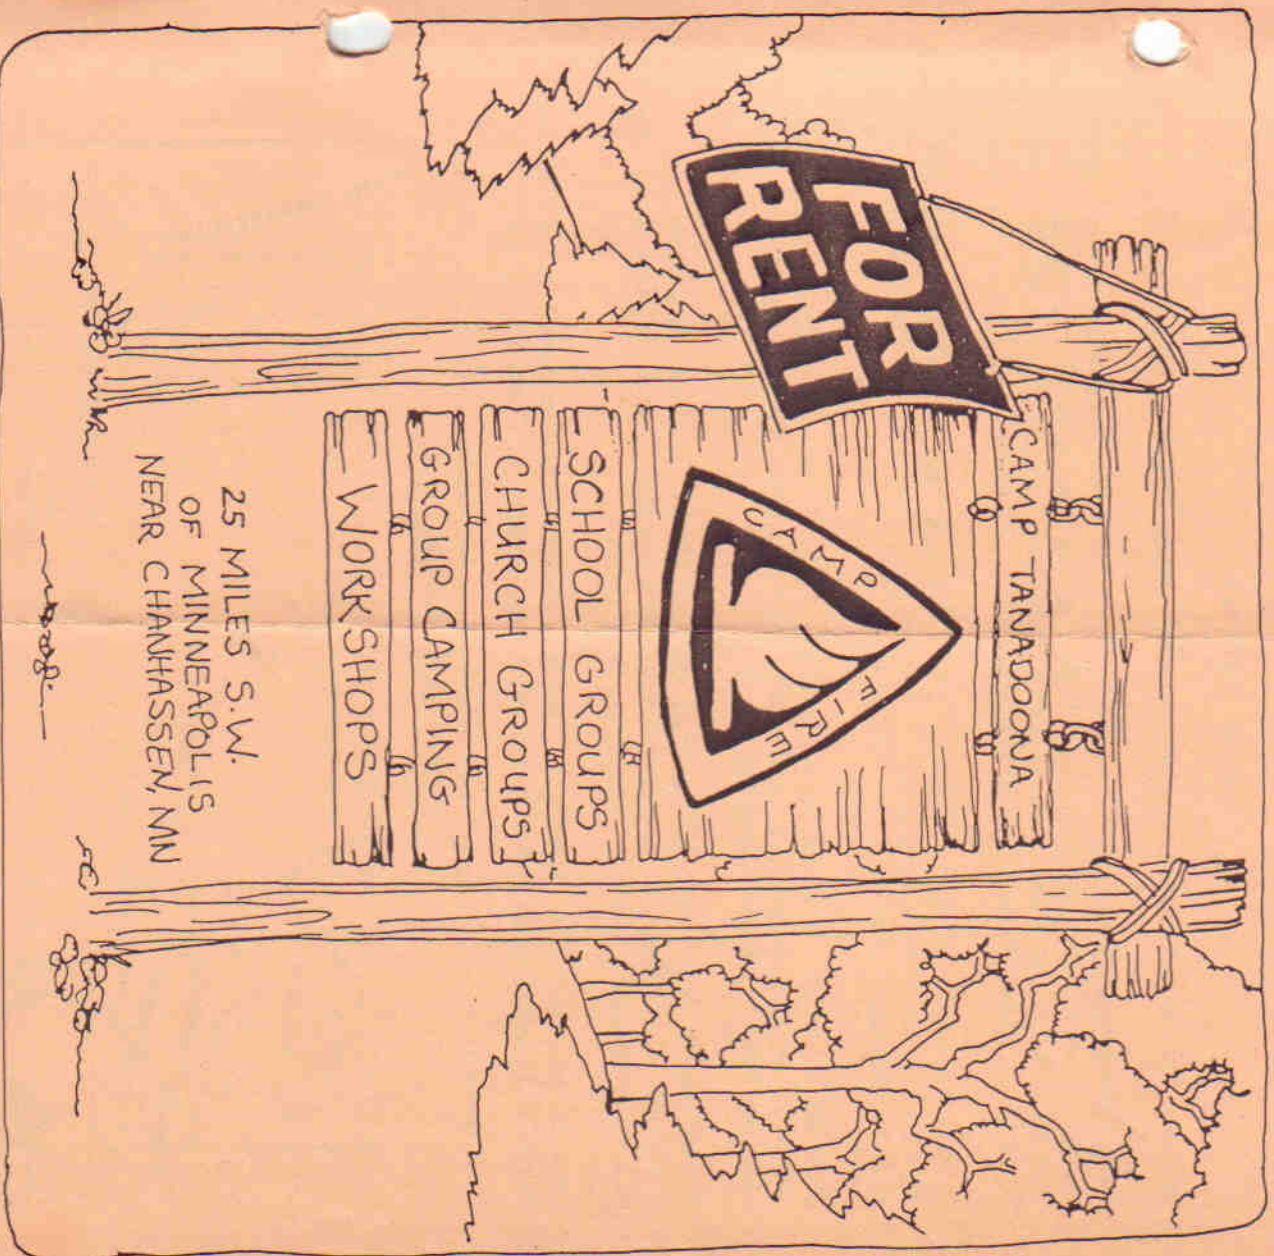 FOR
RENT
CAMP TANADOONA
CAMP FIRE
SCHOOL GROUPS
CHURCH GROUPS
GROUP CAMPING
WORKSHOPS
25 MILES S.W.
OF MINNEAPOLIS
NEAR CHANHASSEN, MN